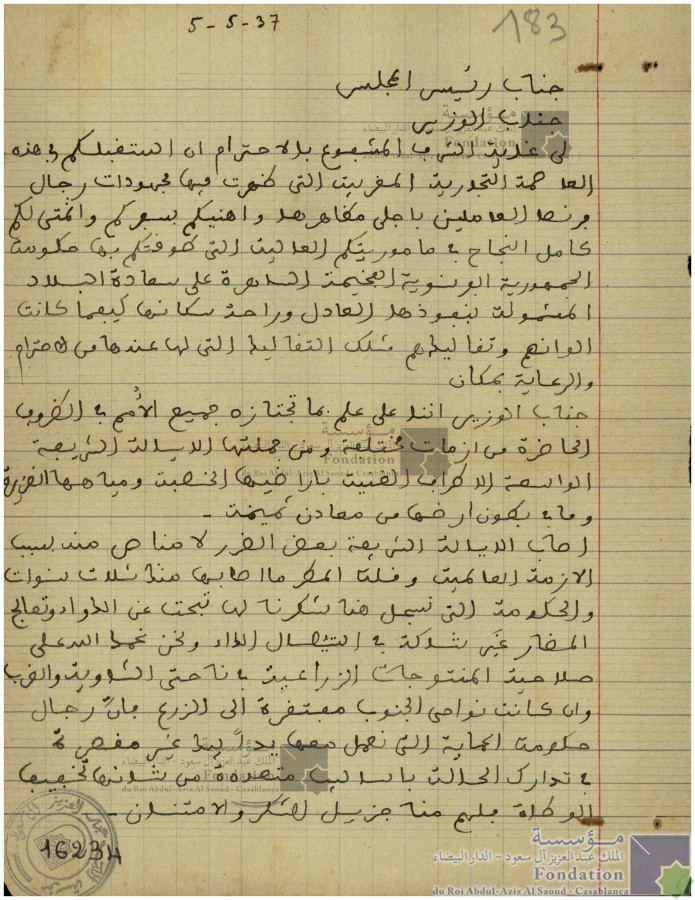 5-5-37
183
جناب رئيس المجلس
جناب الوزير
لي غاية الشرف المشفوع بالاحترام ان استقبلكم في هذه
العاصمة التجارية المغربية التي ظهرت فيها مجهودات رجال
فرنسا العاملين باجلى مظاهرها واهنيكم بسفركم واتمنى لكم
كامل النجاح في ماموريتكم العالية التي طوقتكم بها حكومة
الجمهورية الفرنسوية الفخيمة الساهرة على سعادة البلاد
المشمولة بنفوذها العادل وراحة سكانها كيفما كانت
وتقاليدهم تلك التقاليد التي لها عندها من الاحترام
والرعاية بمكان
جناب الوزير اننا على علم بما تجتازه جميع الأمم في الظروف
الحاضرة من ازمات مختلفة ومن جملتها الايالة الشريفة
الواسعة الاطراف الغنية باراضيها الخصبة ومياهها الغزيرة
وما في بطون ارضها من معادن ثمينة -
اصاب الايالة الشريفة بعض الضرر لا مناص منه بسبب
الازمة العالمية وقلة المطر ما اصابها منذ ثلاث سنوات
والحكومة التي نسجل هنا شكرنا لها تبحث عن الدواء وتعالج
المضار غير شاكة في استئصال الداء ونحن نحمد الله على
صلاحية المنتوجات الزراعية في ناحيتي الشاوية والغرب
وان كانت نواحي الجنوب مفتقرة الى الزرع فان رجال
حكومة الحماية التي نعمل معها يدا بيد غير مقصرة
في تدارك الحالة باساليب متعددة من شانها تخفيف
الوطأة فلهم منا جزيل الشكر والامتنان -
16234
مؤسسة
الملك عبد العزيز آل سعود - الدار البيضاء
Fondation
du Roi Abdul-Aziz Al Saoud - Casablanca